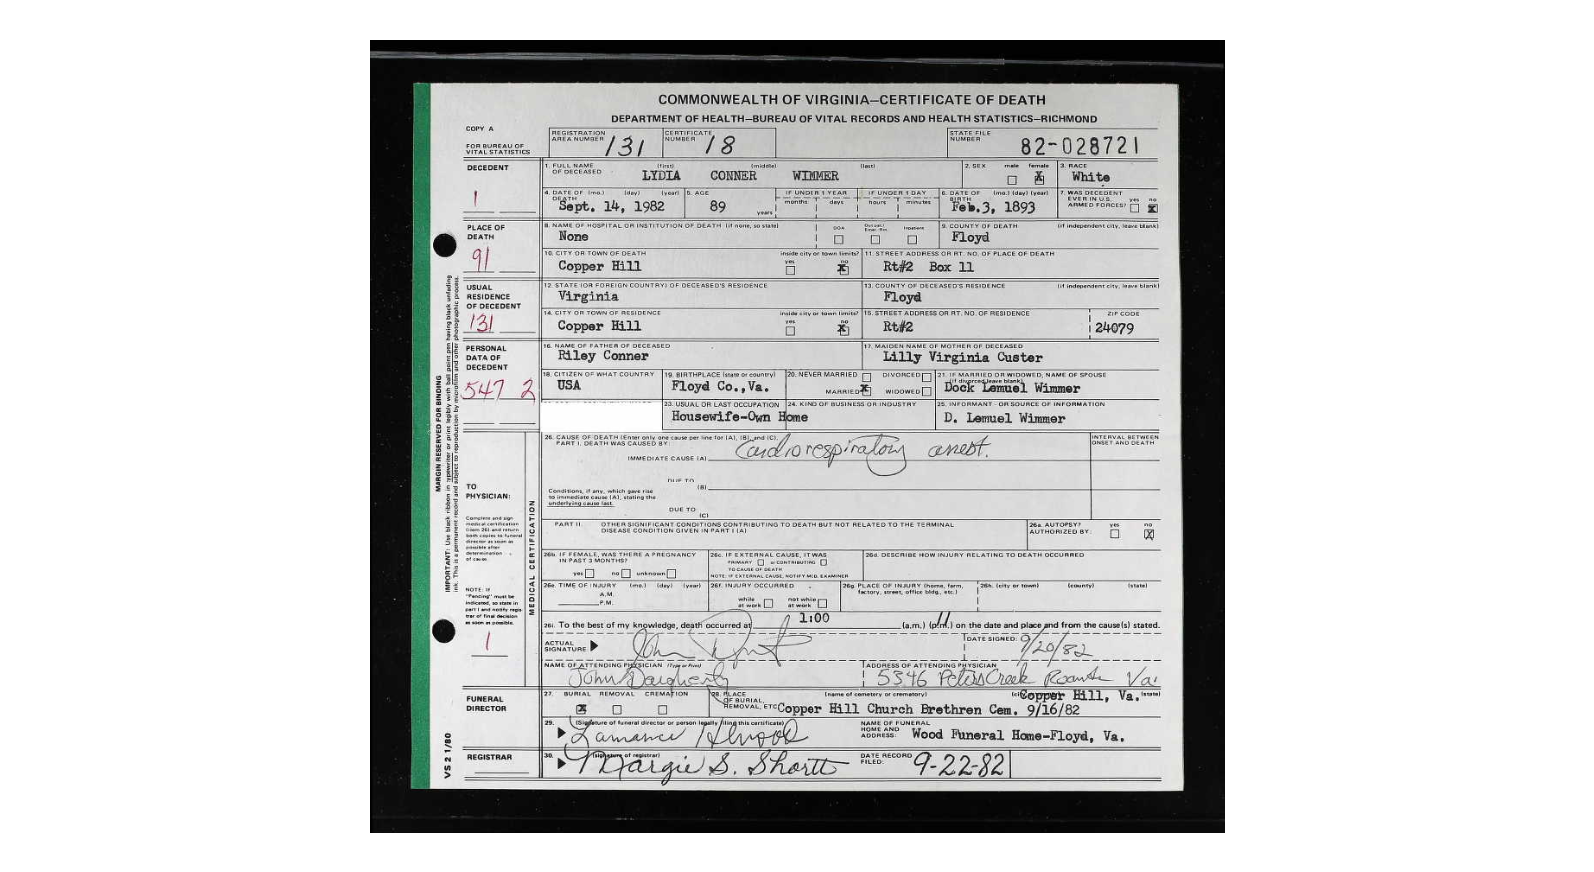 COMMONWEALTH OF VIRGINIA—CERTIFICATE OF DEATH
DEPARTMENT OF HEALTH—BUREAU OF VITAL RECORDS AND HEALTH STATISTICS—RICHMOND
COPY A
FOR BUREAU OF VITAL STATISTICS
REGISTRATION AREA NUMBER 131 CERTIFICATE NUMBER 18 STATE FILE NUMBER 82-028721
DECEDENT
1
1. FULL NAME OF DECEASED (first) (middle) (last) LYDIA CONNER WIMMER
2. SEX male female X 3. RACE White
4. DATE OF DEATH (mo.) (day) (year) Sept. 14, 1982 5. AGE 89 years
IF UNDER 1 YEAR months days IF UNDER 1 DAY hours minutes
6. DATE OF BIRTH (mo.) (day) (year) Feb.3, 1893
7. WAS DECEDENT EVER IN U.S. ARMED FORCES? yes no X
PLACE OF DEATH
91
8. NAME OF HOSPITAL OR INSTITUTION OF DEATH (if none, so state) None DOA
9. COUNTY OF DEATH (if independent city, leave blank) Floyd
10. CITY OR TOWN OF DEATH Copper Hill inside city or town limits? yes no X
11. STREET ADDRESS OR RT. NO. OF PLACE OF DEATH Rt#2 Box 11
USUAL RESIDENCE OF DECEDENT
131
12. STATE (OR FOREIGN COUNTRY) OF DECEASED'S RESIDENCE Virginia
13. COUNTY OF DECEASED'S RESIDENCE (if independent city, leave blank) Floyd
14. CITY OR TOWN OF RESIDENCE Copper Hill inside city or town limits? yes no X
15. STREET ADDRESS OR RT. NO. OF RESIDENCE Rt#2 ZIP CODE 24079
PERSONAL DATA OF DECEDENT
547 2
16. NAME OF FATHER OF DECEASED Riley Conner
17. MAIDEN NAME OF MOTHER OF DECEASED Lilly Virginia Custer
18. CITIZEN OF WHAT COUNTRY USA
19. BIRTHPLACE (state or country) Floyd Co.,Va.
20. NEVER MARRIED DIVORCED MARRIED X WIDOWED
21. IF MARRIED OR WIDOWED, NAME OF SPOUSE (if divorced leave blank) Dock Lemuel Wimmer
23. USUAL OR LAST OCCUPATION Housewife-Own Home
24. KIND OF BUSINESS OR INDUSTRY
25. INFORMANT - OR SOURCE OF INFORMATION D. Lemuel Wimmer
MARGIN RESERVED FOR BINDING
TO PHYSICIAN:
Complete and sign medical certification (item 26) and return both copies to funeral director as soon as possible after determination of cause
NOTE: If "Pending" must be indicated, so state in part I and notify registrar of final decision as soon as possible.
1
MEDICAL CERTIFICATION
26. CAUSE OF DEATH (Enter only one cause per line for (A), (B), and (C).
PART I. DEATH WAS CAUSED BY: INTERVAL BETWEEN ONSET AND DEATH
IMMEDIATE CAUSE (A) Cardiorespiratory arrest.
DUE TO (B)
Conditions, if any, which gave rise to immediate cause (A), stating the underlying cause last.
DUE TO (C)
PART II. OTHER SIGNIFICANT CONDITIONS CONTRIBUTING TO DEATH BUT NOT RELATED TO THE TERMINAL DISEASE CONDITION GIVEN IN PART I (A)
26a. AUTOPSY? AUTHORIZED BY: yes no X
26b. IF FEMALE, WAS THERE A PREGNANCY IN PAST 3 MONTHS? yes no unknown
26c. IF EXTERNAL CAUSE, IT WAS PRIMARY or CONTRIBUTING TO CAUSE OF DEATH
NOTE: IF EXTERNAL CAUSE, NOTIFY MED. EXAMINER
26d. DESCRIBE HOW INJURY RELATING TO DEATH OCCURRED
26e. TIME OF INJURY (mo.) (day) (year) A.M. P.M.
26f. INJURY OCCURRED while at work not while at work
26g. PLACE OF INJURY (home, farm, factory, street, office bldg., etc.)
26h. (city or town) (county) (state)
26i. To the best of my knowledge, death occurred at 1:00 (a.m.) (p.m.) on the date and place and from the cause(s) stated.
ACTUAL SIGNATURE DATE SIGNED: 9/20/82
NAME OF ATTENDING PHYSICIAN (Type or Print) John Daugherty
ADDRESS OF ATTENDING PHYSICIAN 5346 Peters Creek Roanoke Va.
FUNERAL DIRECTOR
27. BURIAL X REMOVAL CREMATION
28. PLACE OF BURIAL, REMOVAL, ETC (name of cemetery or crematory) (state) Copper Hill, Va.
Copper Hill Church Brethren Cem. 9/16/82
29. (Signature of funeral director or person legally filing this certificate)
NAME OF FUNERAL HOME AND ADDRESS: Wood Funeral Home-Floyd, Va.
REGISTRAR
30. (signature of registrar) Margie S. Shortt
DATE RECORD FILED: 9-22-82
VS 2 1/80